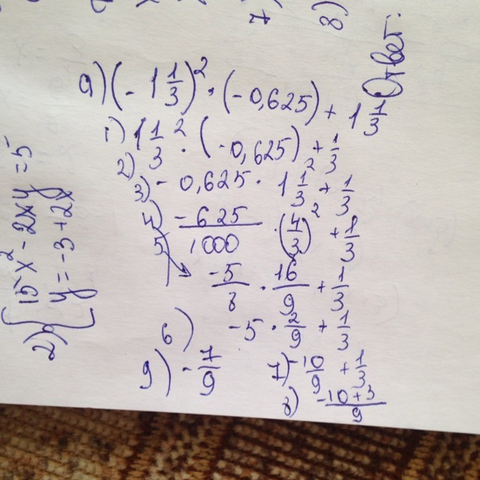 9) (-1 1/3)² · (-0,625) + 1 1/3
1) 1 1/3 ² · (-0,625) + 1/3
2)
3) - 0,625 · 1 1/3 ² + 1/3
4) -625/1000 · (4/3)² + 1/3
5) -5/8 · 16/9 + 1/3
6) -5 · 2/9 + 1/3
7) -10/9 + 1/3
8) -10+3/9
9) -7/9
Ответ:
2) { 15x² - 2xy = 5
y = -3 + 2x
7)
8)